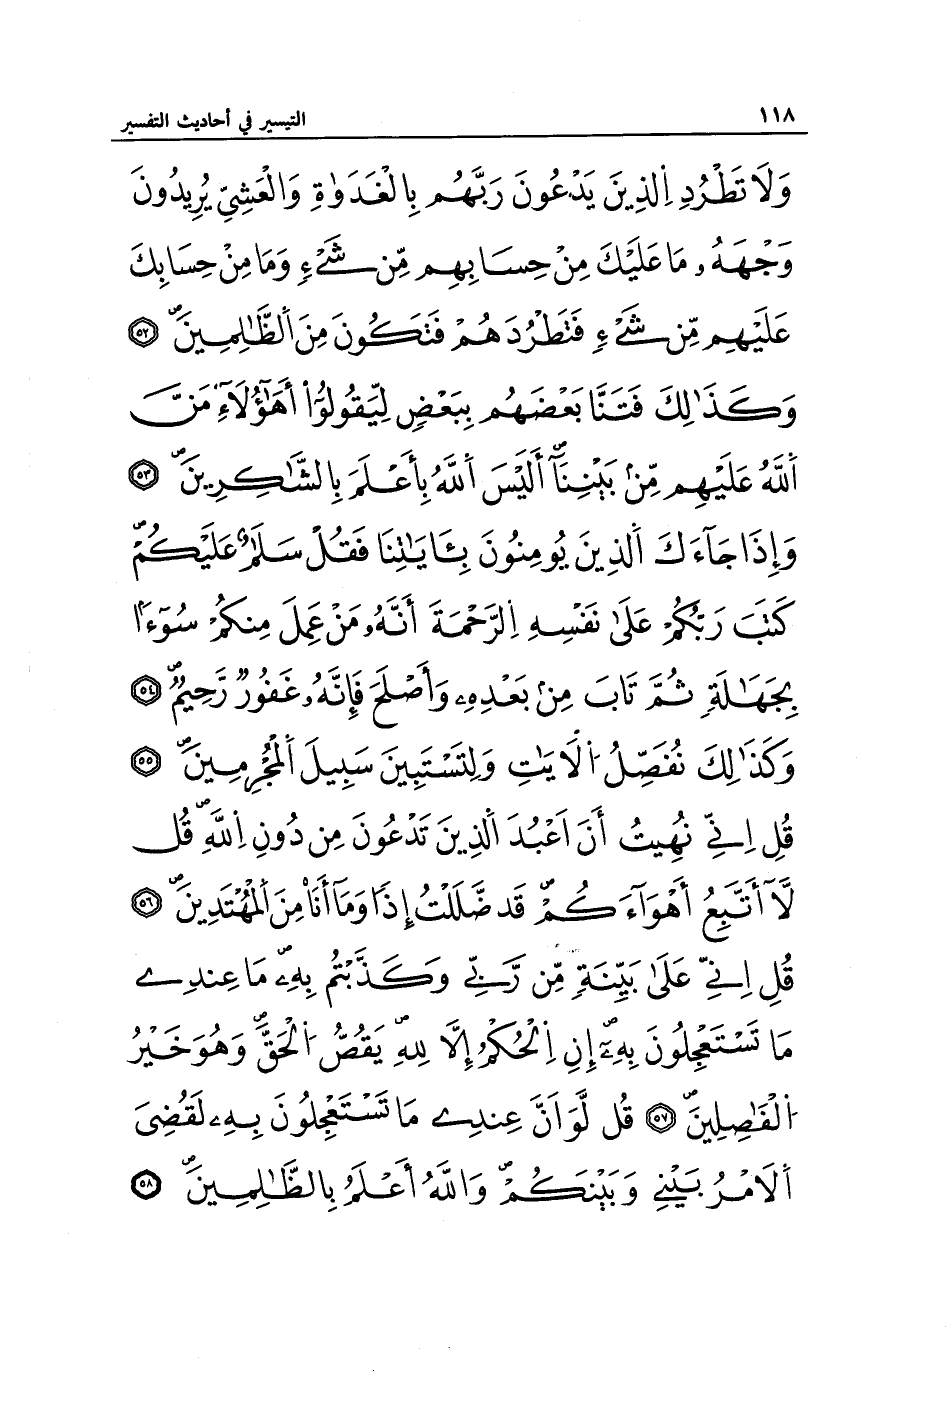 ١١٨
التيسير في أحاديث التفسير
وَلَا تَطْرُدِ اِلذِينَ يَدْعُونَ رَبَّهُم بِالْغَدَوٰةِ وَالْعَشِيِّ يُرِيدُونَ
وَجْهَهُۥ مَا عَلَيْكَ مِنْ حِسَابِهِم مِّن شَيْءٖ وَمَا مِنْ حِسَابِكَ
عَلَيْهِم مِّن شَيْءٖ فَتَطْرُدَهُمْ فَتَكُونَ مِنَ اَلظَّٰلِمِينَۖ ٥٢
وَكَذَٰلِكَ فَتَنَّا بَعْضَهُم بِبَعْضٖ لِّيَقُولُوٓاْ أَهَٰٓؤُلَآءِ مَنَّ
اَللَّهُ عَلَيْهِم مِّنۢ بَيْنِنَآۖ أَلَيْسَ اَللَّهُ بِأَعْلَمَ بِالشَّٰكِرِينَۖ ٥٣
وَإِذَا جَآءَكَ اَلذِينَ يُومِنُونَ بِـَٔايَٰتِنَا فَقُلْ سَلَٰمٌ عَلَيْكُمْۖ
كَتَبَ رَبُّكُمْ عَلَىٰ نَفْسِهِ اِلرَّحْمَةَ أَنَّهُۥ مَنْ عَمِلَ مِنكُمْ سُوٓءاَۢ
بِجَهَٰلَةٖ ثُمَّ تَابَ مِنۢ بَعْدِهِۦ وَأَصْلَحَ فَإِنَّهُۥ غَفُورٞ رَّحِيمٞۖ ٥٤
وَكَذَٰلِكَ نُفَصِّلُ اُلَايَٰتِ وَلِتَسْتَبِينَ سَبِيلَ اَلْمُجْرِمِينَۖ ٥٥
قُلِ اِنِّے نُهِيتُ أَنَ اَعْبُدَ اَلذِينَ تَدْعُونَ مِن دُونِ اِللَّهِۖ قُل
لَّآ أَتَّبِعُ أَهْوَآءَكُمْۖ قَد ضَّلَلْتُ إِذاٗ وَمَآ أَنَا۠ مِنَ اَلْمُهْتَدِينَۖ ٥٦
قُلِ اِنِّے عَلَىٰ بَيِّنَةٖ مِّن رَّبِّے وَكَذَّبْتُم بِهِۦۖ مَا عِندِے
مَا تَسْتَعْجِلُونَ بِهِۦٓۖ إِنِ اِلْحُكْمُ إِلَّا لِلهِۖ يَقُصُّ اُلْحَقَّۖ وَهُوَ خَيْرُ
اُلْفَٰصِلِينَۖ ٥٧ قُل لَّوَ اَنَّ عِندِے مَا تَسْتَعْجِلُونَ بِهِۦ لَقُضِيَ
اَلَامْرُ بَيْنِے وَبَيْنَكُمْۖ وَاللَّهُ أَعْلَمُ بِالظَّٰلِمِينَۖ ٥٨